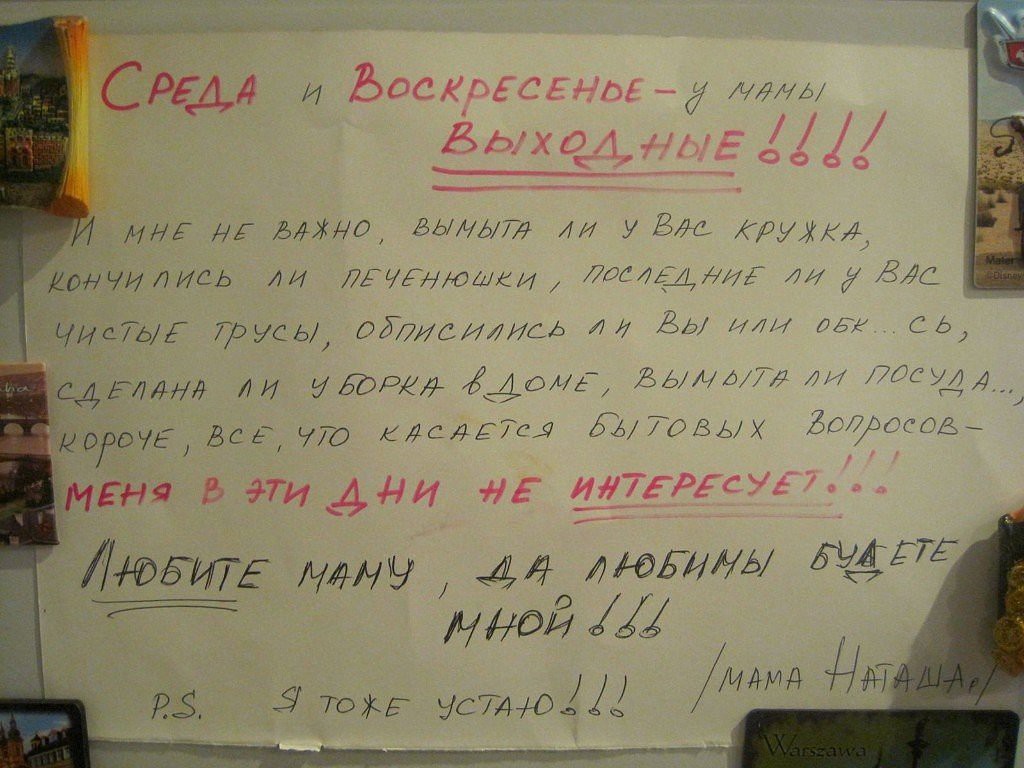 СРЕДА И ВОСКРЕСЕНЬЕ – У МАМЫ
ВЫХОДНЫЕ!!!!
И МНЕ НЕ ВАЖНО, ВЫМЫТА ЛИ У ВАС КРУЖКА,
КОНЧИЛИСЬ ЛИ ПЕЧЕНЮШКИ, ПОСЛЕДНИЕ ЛИ У ВАС
ЧИСТЫЕ ТРУСЫ, ОБПИСИЛИСЬ ЛИ ВЫ ИЛИ ОБК...СЬ,
СДЕЛАНА ЛИ УБОРКА В ДОМЕ, ВЫМЫТА ЛИ ПОСУДА...,
КОРОЧЕ, ВСЕ, ЧТО КАСАЕТСЯ БЫТОВЫХ ВОПРОСОВ –
МЕНЯ В ЭТИ ДНИ НЕ ИНТЕРЕСУЕТ!!!
ЛЮБИТЕ МАМУ, ДА ЛЮБИМЫ БУДЕТЕ
МНОЙ!!!
/МАМА НАТАША/
P.S. Я ТОЖЕ УСТАЮ!!!
Warszawa
©Disney